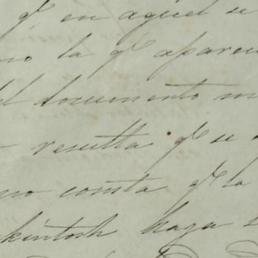 q^e en aquel se
no la q^e aparec
el documento m
resulta q^e se
no consta q^e la
kintosh haga